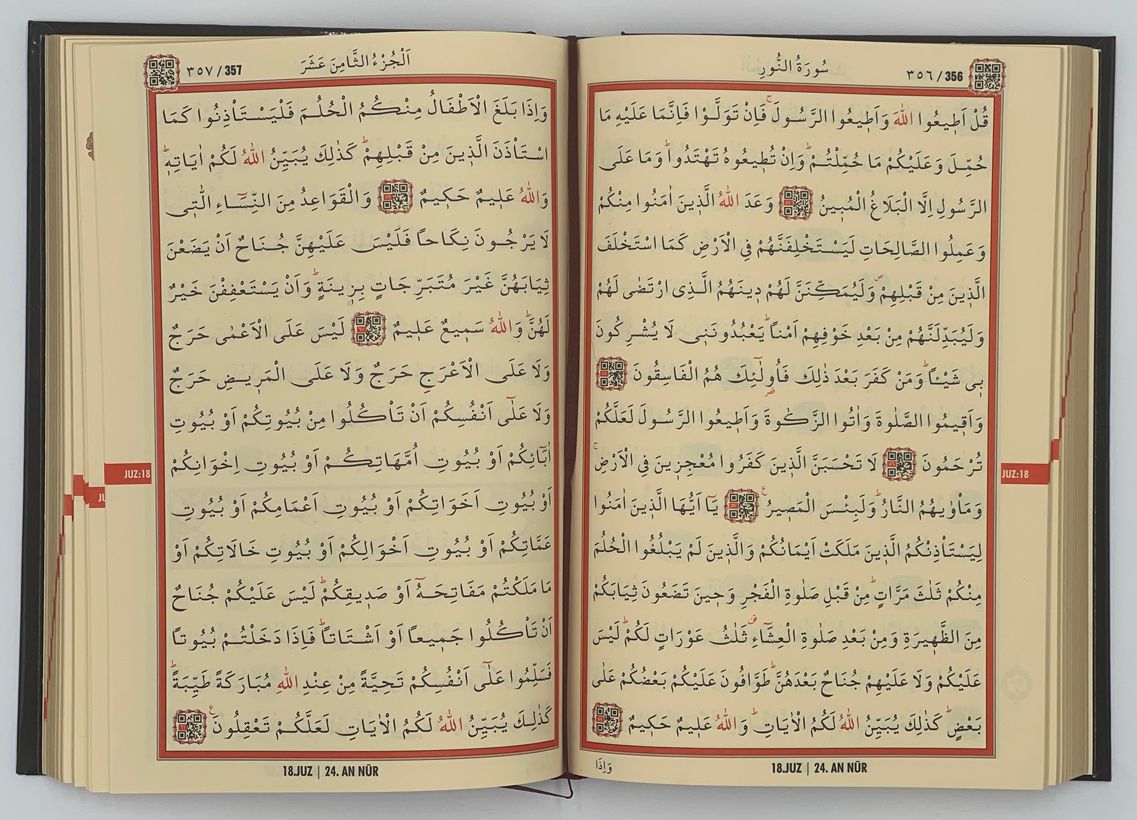 سُورَةُ النُّورِ
٣٥٦ / 356
قُلْ اَطٖيعُوا اللّٰهَ وَاَطٖيعُوا الرَّسُولَۚ فَاِنْ تَوَلَّوْا فَاِنَّمَا عَلَيْهِ مَا
حُمِّلَ وَعَلَيْكُمْ مَا حُمِّلْتُمْؕ وَاِنْ تُطٖيعُوهُ تَهْتَدُواؕ وَمَا عَلَى
الرَّسُولِ اِلَّا الْبَلَاغُ الْمُبٖينُ وَعَدَ اللّٰهُ الَّذٖينَ اٰمَنُوا مِنْكُمْ
وَعَمِلُوا الصَّالِحَاتِ لَيَسْتَخْلِفَنَّهُمْ فِي الْاَرْضِ كَمَا اسْتَخْلَفَ
الَّذٖينَ مِنْ قَبْلِهِمْࣕ وَلَيُمَكِّنَنَّ لَهُمْ دٖينَهُمُ الَّذِي ارْتَضٰى لَهُمْ
وَلَيُبَدِّلَنَّهُمْ مِنْ بَعْدِ خَوْفِهِمْ اَمْناًؕ يَعْبُدُونَنٖي لَا يُشْرِكُونَ
بٖي شَيْـٔاًؕ وَمَنْ كَفَرَ بَعْدَ ذٰلِكَ فَاُو۬لٰٓئِكَ هُمُ الْفَاسِقُونَ
وَاَقٖيمُوا الصَّلٰوةَ وَاٰتُوا الزَّكٰوةَ وَاَطٖيعُوا الرَّسُولَ لَعَلَّكُمْ
تُرْحَمُونَ لَا تَحْسَبَنَّ الَّذٖينَ كَفَرُوا مُعْجِزٖينَ فِي الْاَرْضِۚ
وَمَأْوٰيهُمُ النَّارُؕ وَلَبِئْسَ الْمَصٖيرُ يَٓا اَيُّهَا الَّذٖينَ اٰمَنُوا
لِيَسْتَأْذِنْكُمُ الَّذٖينَ مَلَكَتْ اَيْمَانُكُمْ وَالَّذٖينَ لَمْ يَبْلُغُوا الْحُلُمَ
مِنْكُمْ ثَلٰثَ مَرَّاتٍؕ مِنْ قَبْلِ صَلٰوةِ الْفَجْرِ وَحٖينَ تَضَعُونَ ثِيَابَكُمْ
مِنَ الظَّهٖيرَةِ وَمِنْ بَعْدِ صَلٰوةِ الْعِشَٓاءِ ثَلٰثُ عَوْرَاتٍ لَكُمْؕ لَيْسَ
عَلَيْكُمْ وَلَا عَلَيْهِمْ جُنَاحٌ بَعْدَهُنَّؕ طَوَّافُونَ عَلَيْكُمْ بَعْضُكُمْ عَلٰى
بَعْضٍؕ كَذٰلِكَ يُبَيِّنُ اللّٰهُ لَكُمُ الْاٰيَاتِؕ وَاللّٰهُ عَلٖيمٌ حَكٖيمٌ
18.JUZ | 24. AN NŪR
وَاِذَا
JUZ:18
اَلْجُزْءُ الثَّامِنَ عَشَرَ
٣٥٧ / 357
وَاِذَا بَلَغَ الْاَطْفَالُ مِنْكُمُ الْحُلُمَ فَلْيَسْتَأْذِنُوا كَمَا
اسْتَأْذَنَ الَّذٖينَ مِنْ قَبْلِهِمْؕ كَذٰلِكَ يُبَيِّنُ اللّٰهُ لَكُمْ اٰيَاتِهٖؕ
وَاللّٰهُ عَلٖيمٌ حَكٖيمٌ وَالْقَوَاعِدُ مِنَ النِّسَٓاءِ الّٰتٖي
لَا يَرْجُونَ نِكَاحاً فَلَيْسَ عَلَيْهِنَّ جُنَاحٌ اَنْ يَضَعْنَ
ثِيَابَهُنَّ غَيْرَ مُتَبَرِّجَاتٍ بِزٖينَةٍؕ وَاَنْ يَسْتَعْفِفْنَ خَيْرٌ
لَهُنَّؕ وَاللّٰهُ سَمٖيعٌ عَلٖيمٌ لَيْسَ عَلَى الْاَعْمٰى حَرَجٌ
وَلَا عَلَى الْاَعْرَجِ حَرَجٌ وَلَا عَلَى الْمَرٖيضِ حَرَجٌ
وَلَا عَلٰٓى اَنْفُسِكُمْ اَنْ تَأْكُلُوا مِنْ بُيُوتِكُمْ اَوْ بُيُوتِ
اٰبَٓائِكُمْ اَوْ بُيُوتِ اُمَّهَاتِكُمْ اَوْ بُيُوتِ اِخْوَانِكُمْ
اَوْ بُيُوتِ اَخَوَاتِكُمْ اَوْ بُيُوتِ اَعْمَامِكُمْ اَوْ بُيُوتِ
عَمَّاتِكُمْ اَوْ بُيُوتِ اَخْوَالِكُمْ اَوْ بُيُوتِ خَالَاتِكُمْ اَوْ
مَا مَلَكْتُمْ مَفَاتِحَهُٓ اَوْ صَدٖيقِكُمْؕ لَيْسَ عَلَيْكُمْ جُنَاحٌ
اَنْ تَأْكُلُوا جَمٖيعاً اَوْ اَشْتَاتاًؕ فَاِذَا دَخَلْتُمْ بُيُوتاً
فَسَلِّمُوا عَلٰٓى اَنْفُسِكُمْ تَحِيَّةً مِنْ عِنْدِ اللّٰهِ مُبَارَكَةً طَيِّبَةًؕ
كَذٰلِكَ يُبَيِّنُ اللّٰهُ لَكُمُ الْاٰيَاتِ لَعَلَّكُمْ تَعْقِلُونَ
18.JUZ | 24. AN NŪR
JUZ:18
JU